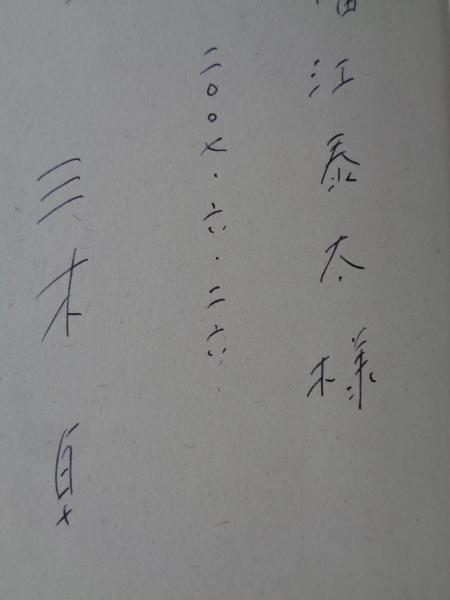 江泰太様
二〇〇七・六・二六
三木 卓